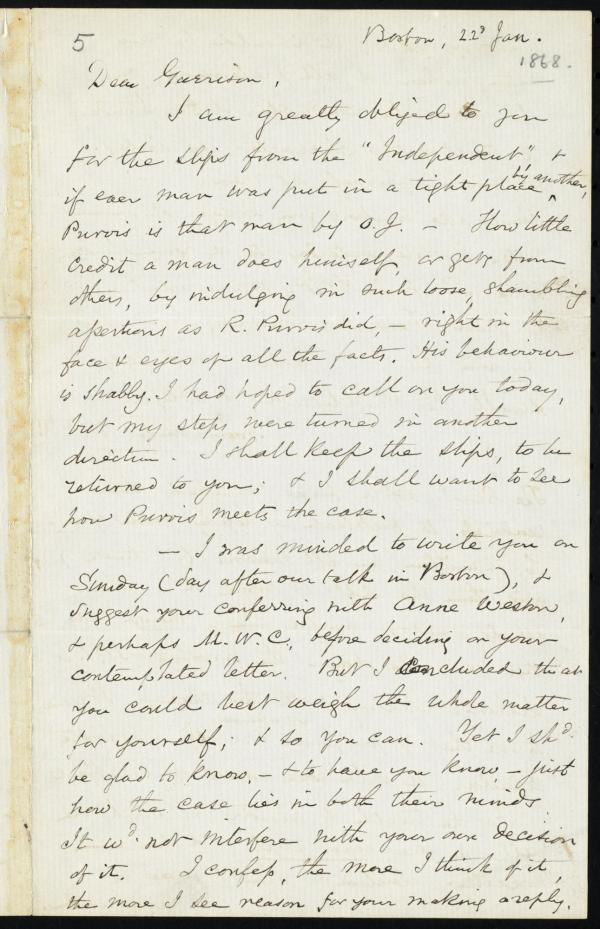 5
Boston, 22d Jan.
1868.
Dear Garrison,
I am greatly obliged to you
for the slips from the "Independent", &
if ever man was put in a tight place by another,
Purvis is that man by O.J. — How little
credit a man does himself, or gets from
others, by indulging in such loose, shambling
assertions as R. Purvis did, — right in the
face & eyes of all the facts. His behaviour
is shabby. I had hoped to call on you today,
but my steps were turned in another
direction. I shall keep the slips, to be
returned to you; & I shall want to see
how Purvis meets the case.
— I was minded to write you on
Sunday (day after our talk in Boston), &
suggest your conferring with Anne Weston,
& perhaps M.W.C., before deciding on your
contemplated letter. But I concluded that
you could best weigh the whole matter
for yourself; & so you can. Yet I shd.
be glad to know, — & to have you know, — just
how the case lies in both their minds.
It wd. not interfere with your own decision
of it. I confess, the more I think of it,
the more I see reason for your making a reply.